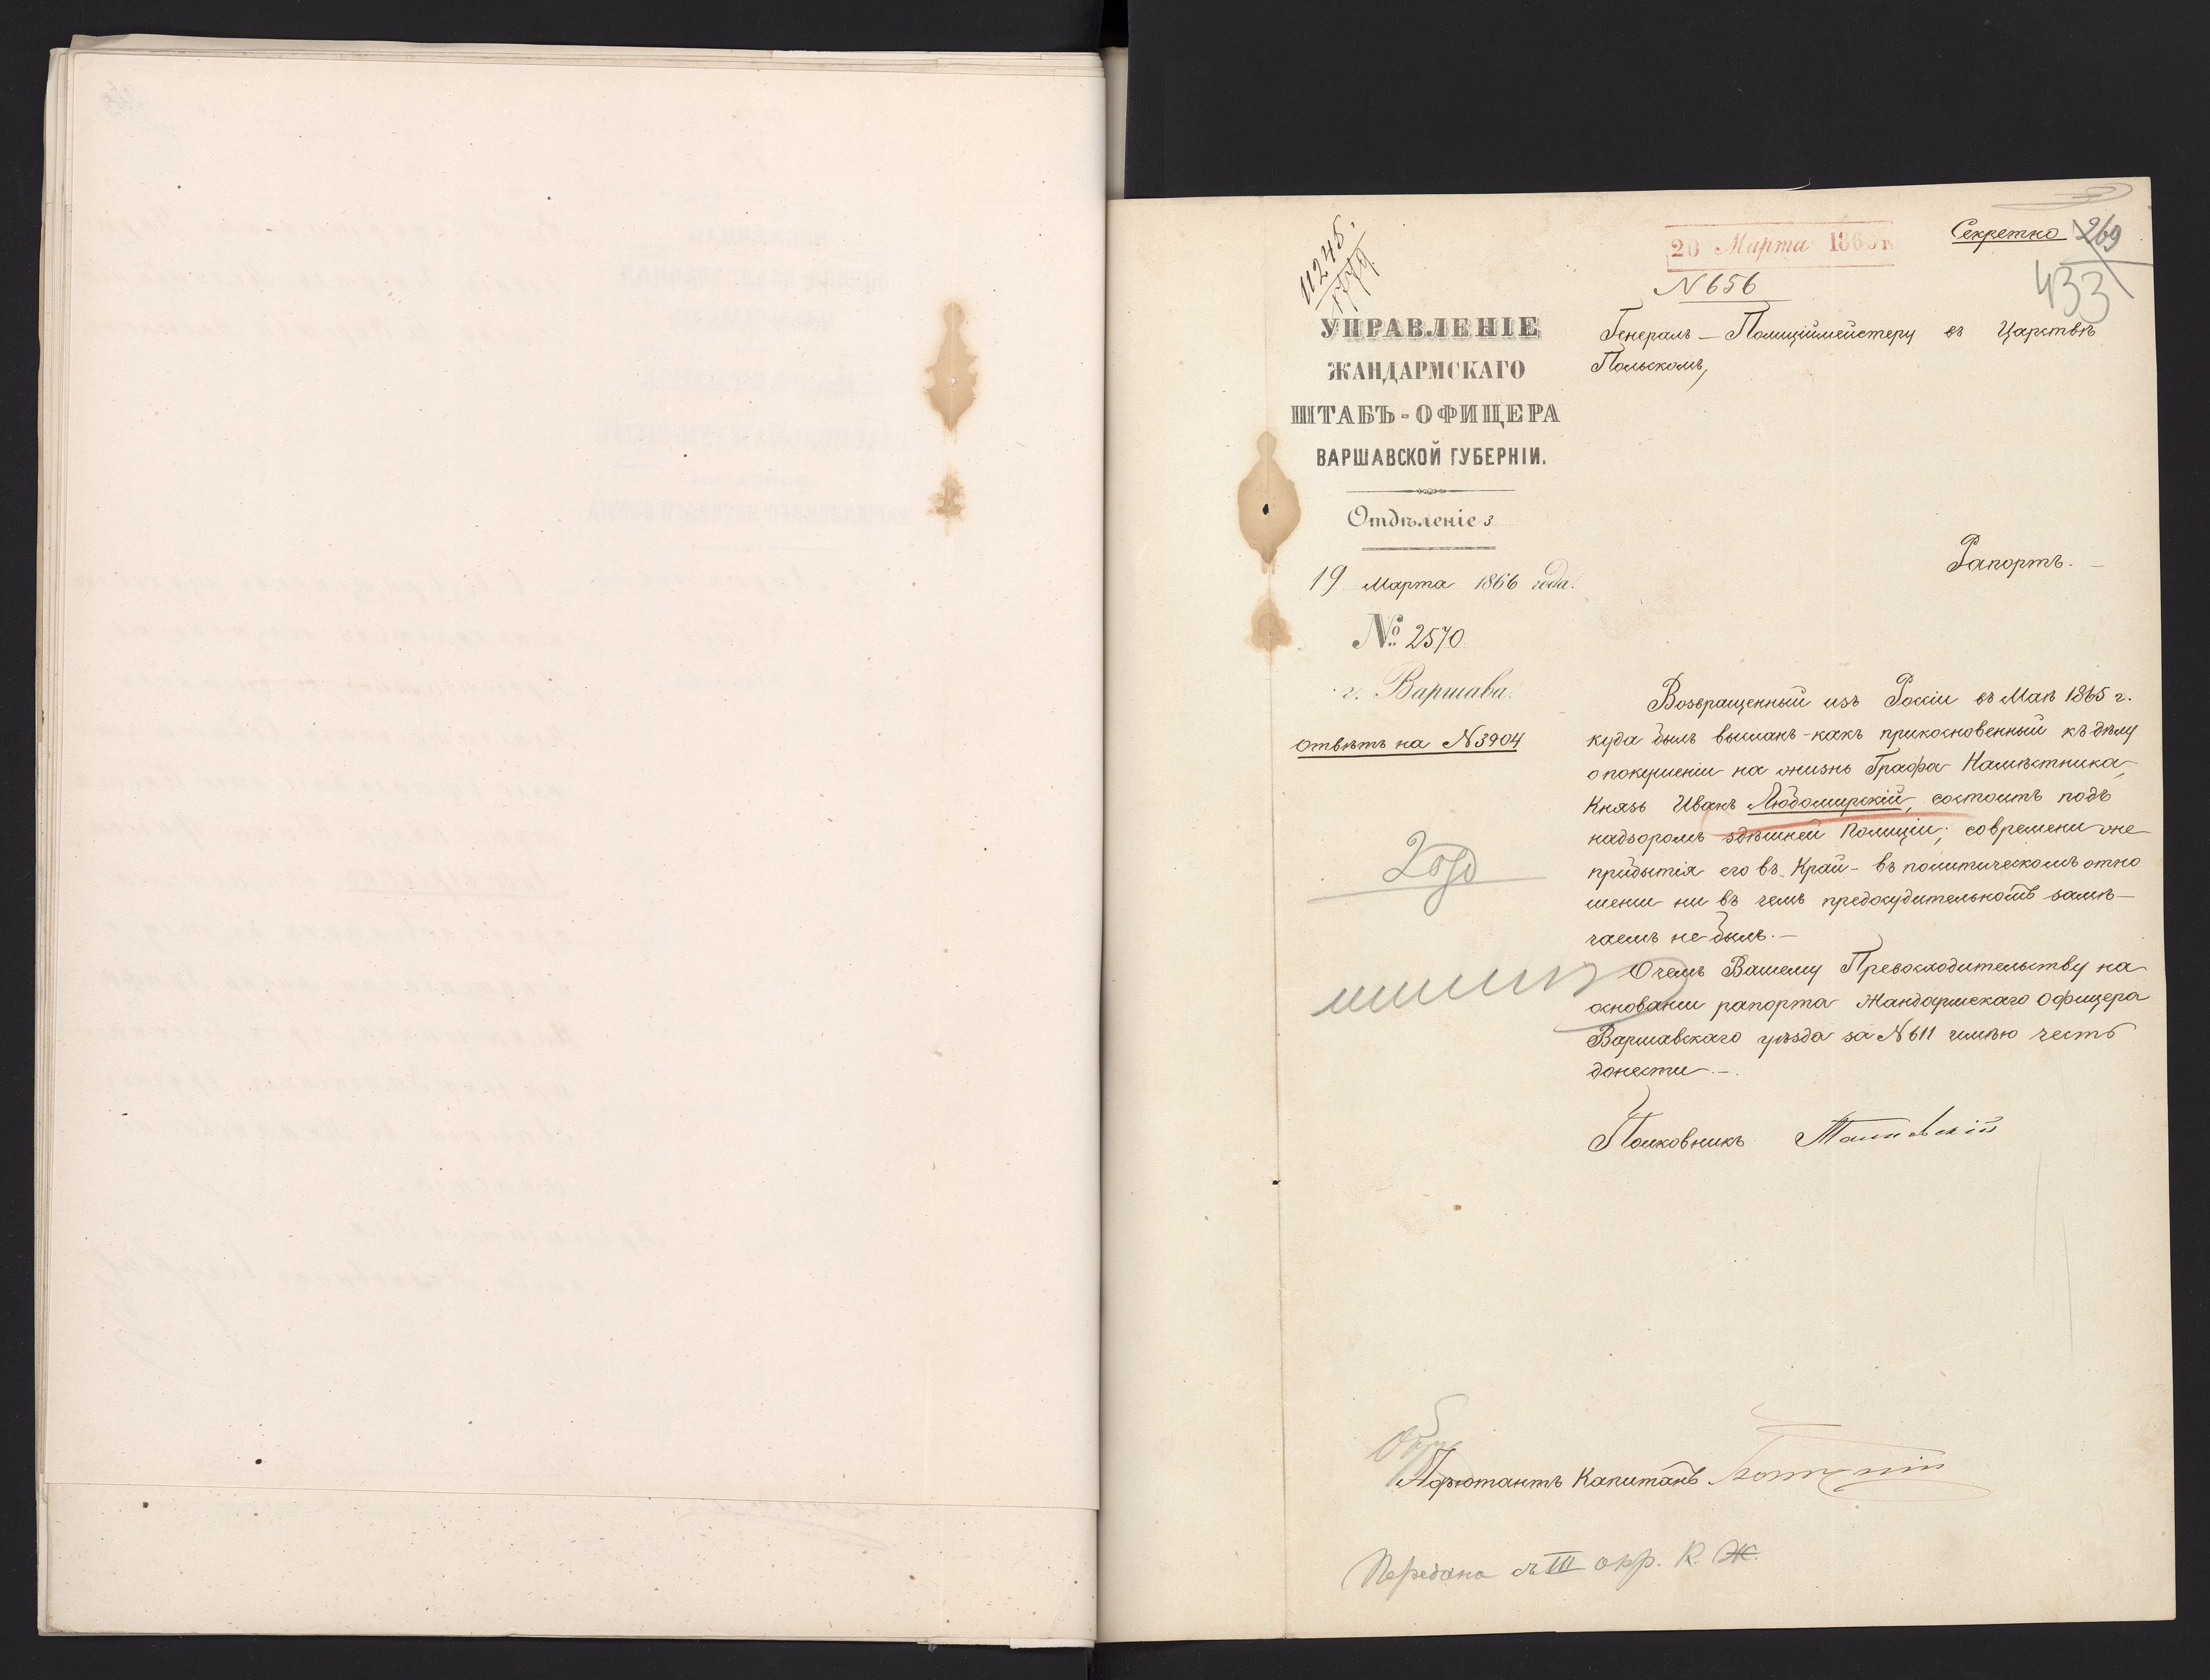 Секретно 269
433
20 Марта 1866 г
N 656
11245.
УПРАВЛЕНІЕ
ЖАНДАРМСКАГО
ШТАБЪ-ОФИЦЕРА
ВАРШАВСКОЙ ГУБЕРНІИ.
Отдѣленіе 3
19 Марта 1866 года.
№ 2570
г. Варшава.
Отвѣтъ на N 3904
Генералъ-Полиціймейстеру въ Царствѣ
Польскомъ,
Рапортъ.
Возвращенный изъ Росіи въ Маѣ 1865 г.
куда былъ высланъ-какъ прикосновенный къ дѣлу
о покушеніи на жизнь Графа Намѣстника,
Князь Иванъ Любомирскій, состоитъ подъ
надзоромъ здѣшней Полиціи; современи же
прибытія его въ Край - въ политическомъ отно
шеніи ни въ чемъ предосудительномъ замѣ-
чаемъ не былъ.-
О чемъ Вашему Превосходительству на
основаніи рапорта Жандармскаго Офицера
Варшавскаго уѣзда за N 611 имѣю честь
донести.-.
Полковникъ
Адъютантъ Капитанъ
Передано въ III окр. К. Ж.